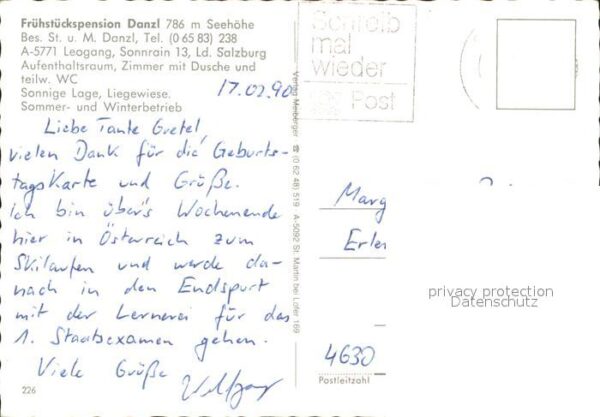 Frühstückspension Danzl 786 m Seehöhe
Bes. St. u. M. Danzl, Tel. (0 65 83) 238
A-5771 Leogang, Sonnrain 13, Ld. Salzburg
Aufenthaltsraum, Zimmer mit Dusche und
teilw. WC
Sonnige Lage, Liegewiese.
Sommer- und Winterbetrieb
17.02.90
Liebe Tante Gretel,
vielen Dank für die Geburts-
tagskarte und Grüße.
Ich bin über's Wochenende
hier in Österreich zum
Skilaufen und werde da-
nach in den Endspurt
mit der Lernerei für das
1. Staatsexamen gehen.
Viele Grüße
226
Verlag Meiberger ☎ (0 62 48) 519 A-5092 St. Martin bei Lofer 169
Schreib
mal
wieder
Post
Marg
Erlen
privacy protection
Datenschutz
4630
Postleitzahl